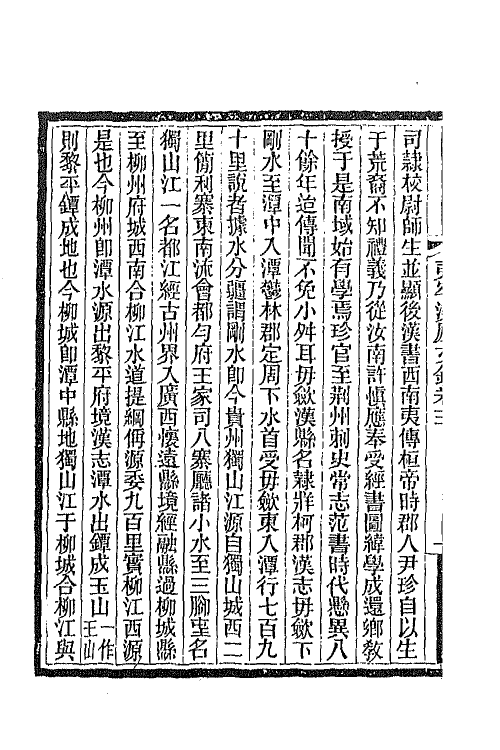 司隸校尉師生並顯後漢書西南夷傳桓帝時郡人尹珍自以生
于荒裔不知禮義乃從汝南許慎應奉受經書圖緯學成還鄉敎
授于是南域始有學焉珍官至荆州刺史常志范書時代懸異八
十餘年追傳聞不免小舛耳毋斂漢縣名隸牂柯郡漢志毋斂下
剛水至潭中入潭鬱林郡定周下水首受毋斂東入潭行七百九
十里說者據水分疆謂剛水卽今貴州獨山江源自獨山城西二
里簡利寨東南流會都勻府王家司八寨廳諸小水至三腳坉名
獨山江一名都江經古州界入廣西懷遠縣境經融縣過柳城縣
至柳州府城西南合柳江水道提綱侮源委九百里實柳江西源
是也今柳州卽潭水源出黎平府境漢志潭水出鐔成玉山一作王山
則黎平鐔成地也今柳城卽潭中縣地獨山江于柳城合柳江與